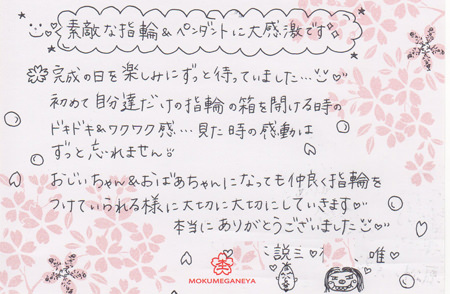 素敵な指輪&ペンダントに大感激です。
完成の日を楽しみにずっと待っていました…
初めて自分達だけの指輪の箱を開ける時の
ドキドキ&ワクワク感…見た時の感動は
ずっと忘れません。
おじいちゃん&おばあちゃんになっても仲良く指輪を
つけていられる様に大切に大切にしていきます
本当にありがとうございました
唯
MOKUMEGANEYA